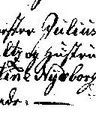 rster Julius
ltz og Hustru
tine Nyborg